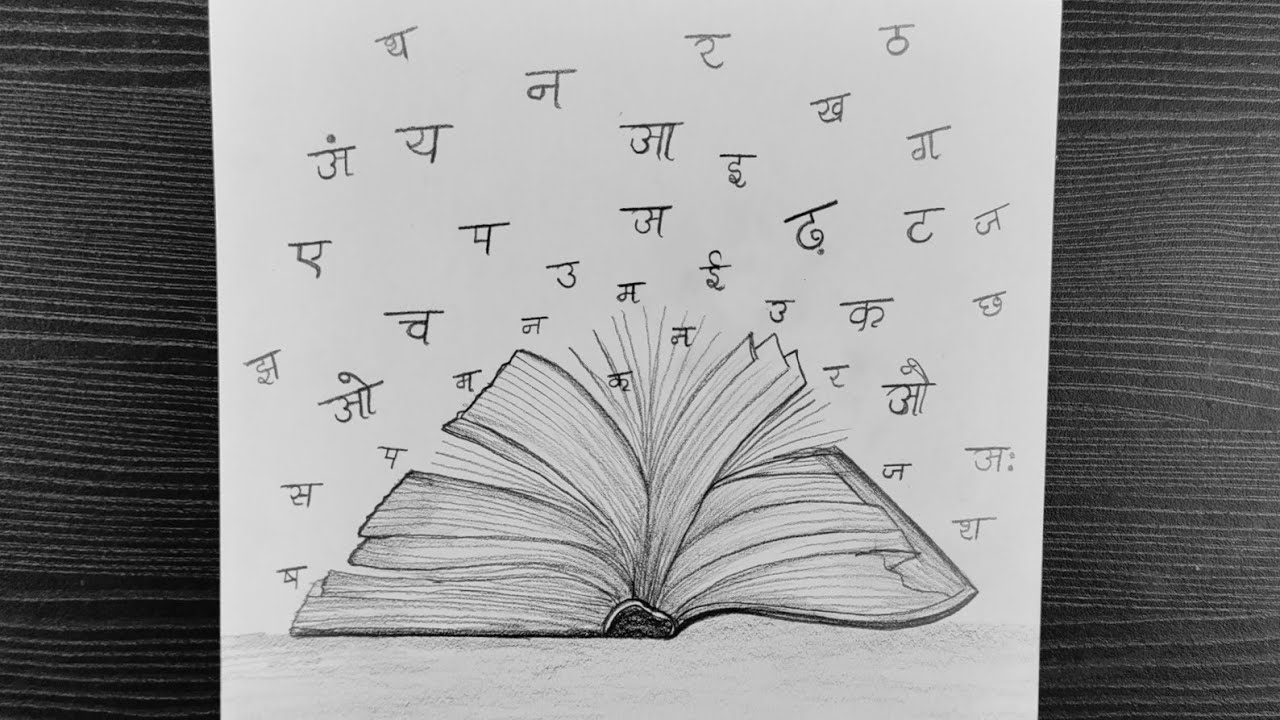 थ
न
र
ठ
ख
अं
य
आ
इ
ग
ए
प
अ
ढ़
ट
ज
उ
म
ई
च
न
न
उ
क
छ
झ
ओ
म
क
र
औ
प
ज
अः
स
श
ष